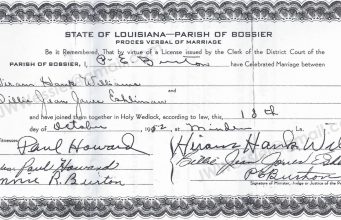 STATE OF LOUISIANA—PARISH OF BOSSIER
PROCES VERBAL OF MARRIAGE
Be it Remembered, That by virtue of a License issued by the Clerk of the District Court of the
PARISH OF BOSSIER, I P. E. Burton have Celebrated Marriage between
Hiram Hank Williams
Billie Jean Jones Eshliman
and have joined them together in Holy Wedlock, according to law, this 18th
day of October 1952 at Minden La.
Witnesses:
Paul Howard
Mrs. Paul Howard
R. Burton
Hiram Hank Wil
Billie Jean Jones
P. E. Burton
Signature of Minister, Judge or Justice of the